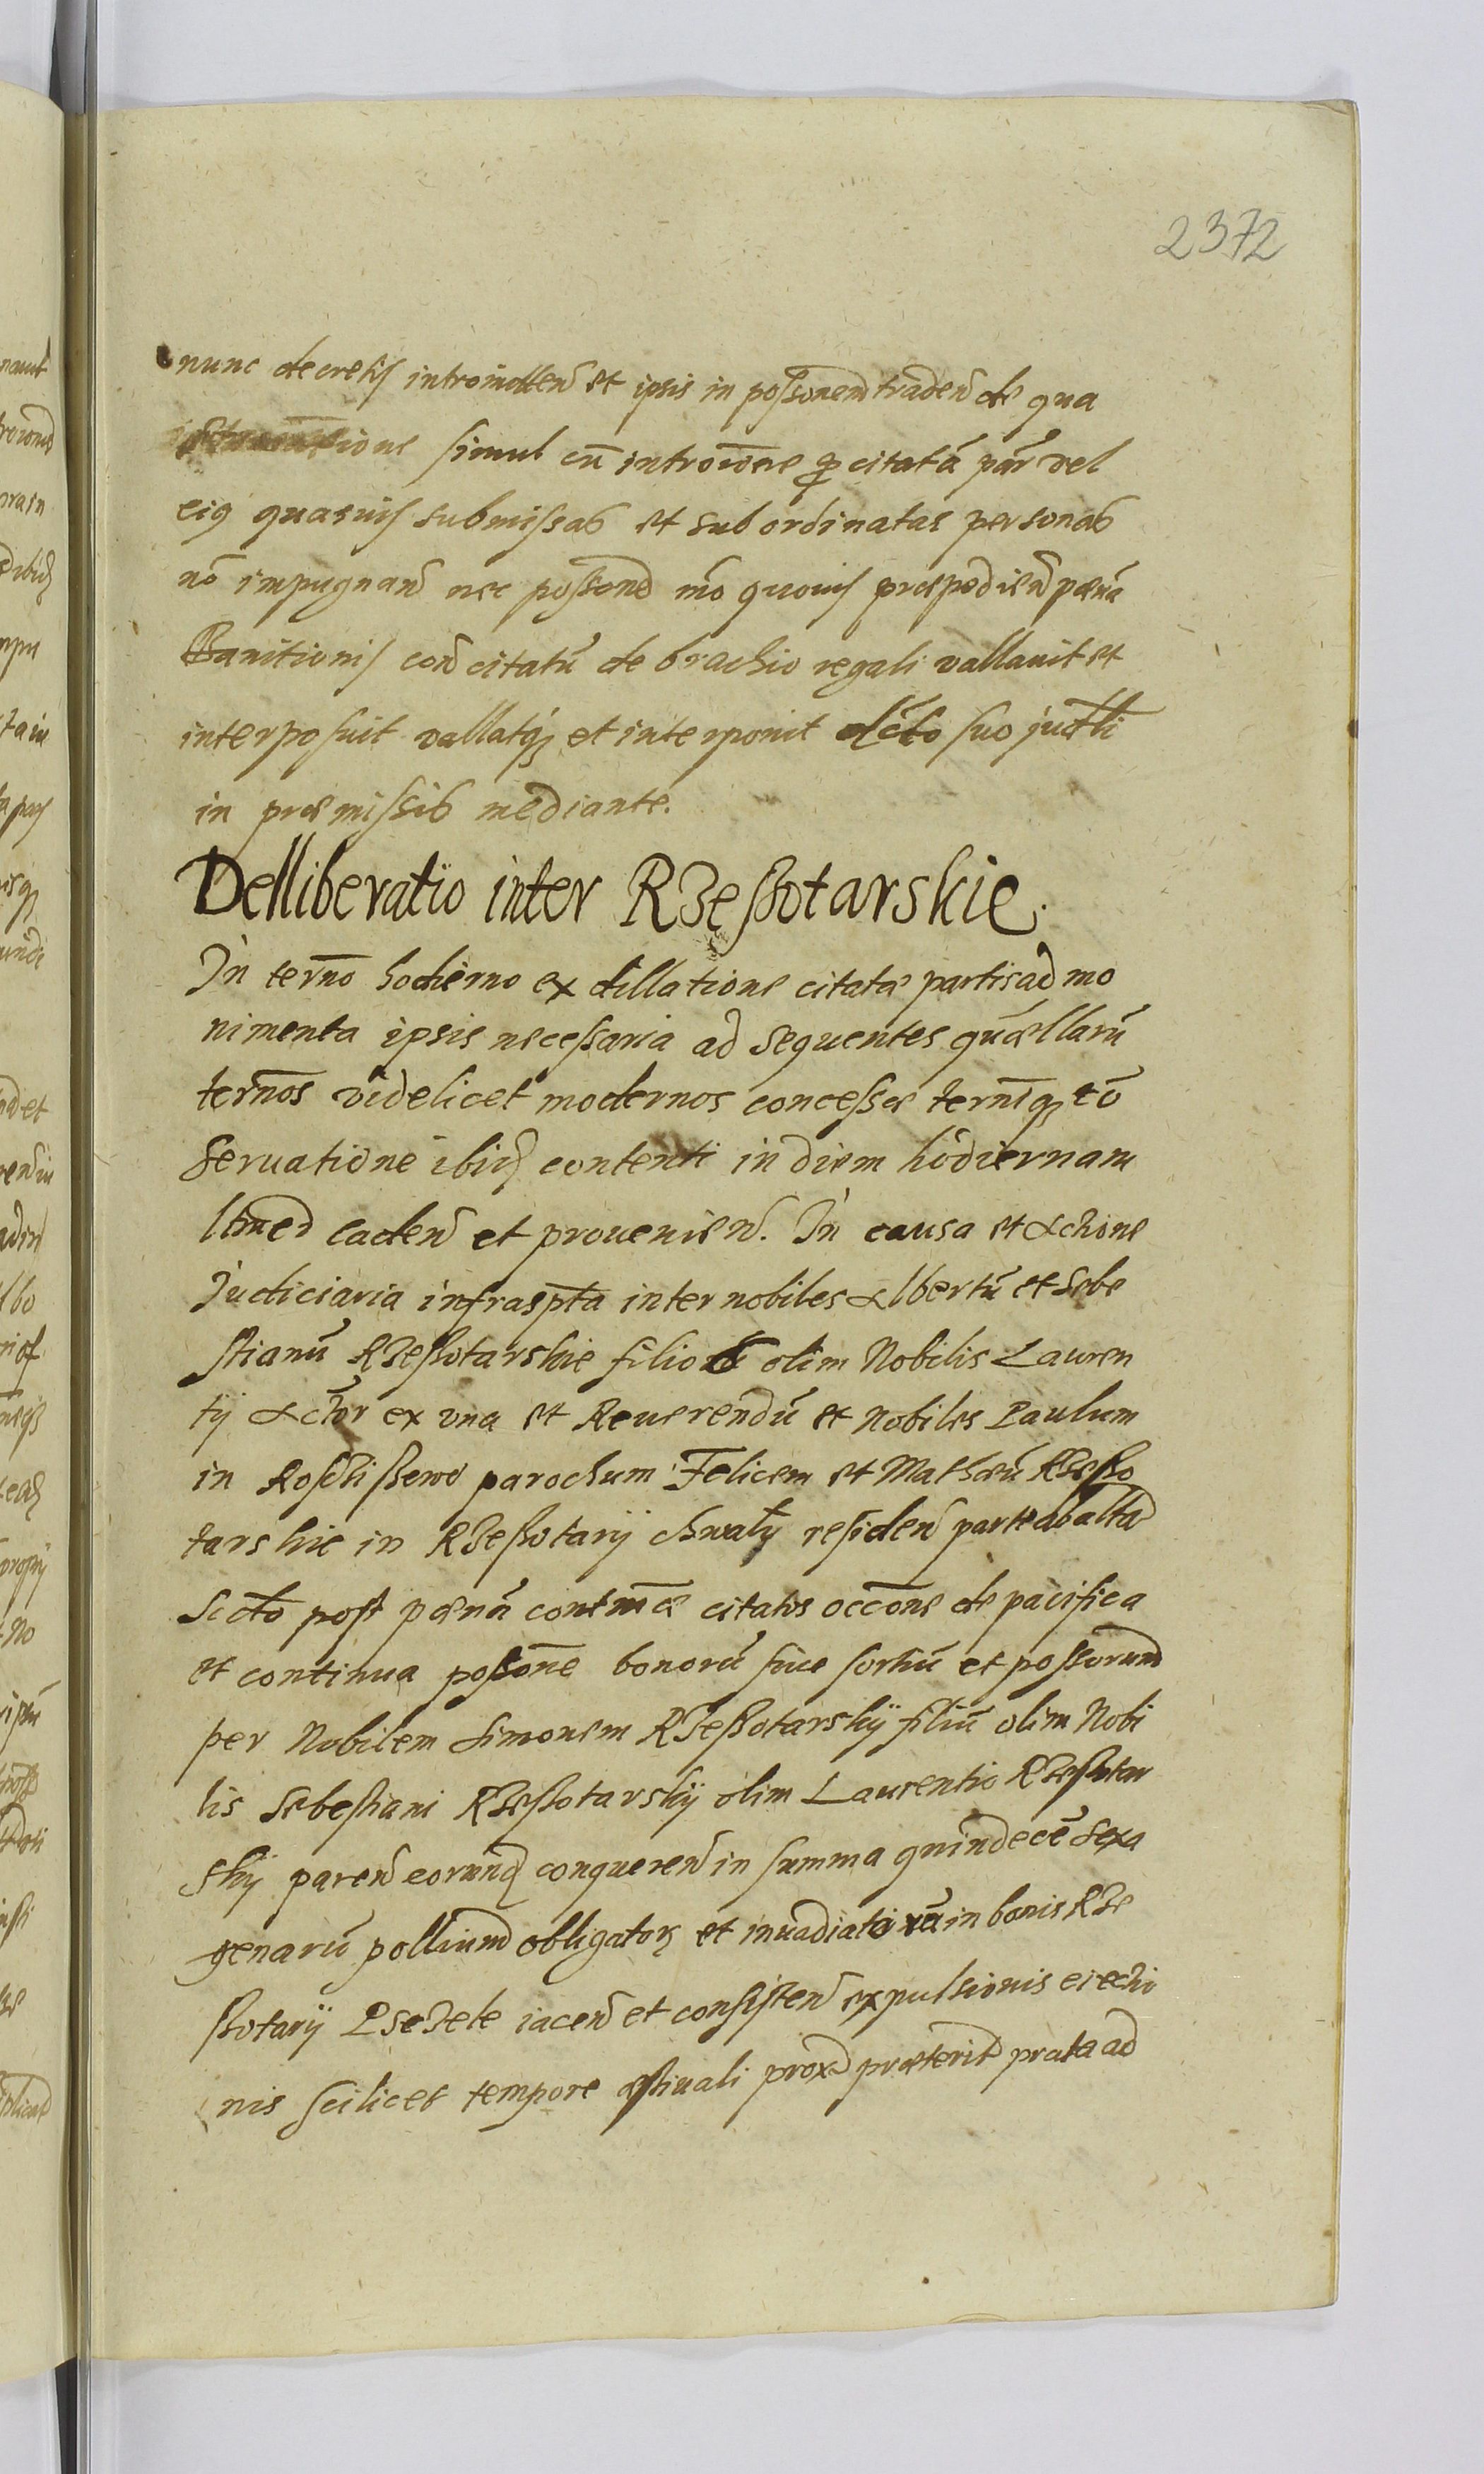 2372
nunc decretis intromitten̄ et ipsis in possionem traden̄ de qua
simul cū intromone p citatā par̄ vel
eiq quasuis submissas et subordinatas personas
nō impugnan̄ nec possond mō quouis præpedien̄ pœnā
Banitionis con̄ citatū de brachio regali vallauit et
interposuit vallatq et interponit dc̄to suo judtli
in præmissis mediante.
Delliberatio inter Rzeszotarskie.
In tern̄o hodierno ex dillatione citatæ partis ad mo
nimenta ipsis necessaria ad sequentes quærellarū
tern̄os videlicet modernos concessæ tern̄iq cō
seruatione ibid contenti in diem hodiernam
caden̄ et prouenien̄. In causa et actione
Judiciaria infrasp̄ta inter nobiles Albertū et Sebe
stianū Rzeszotarskie filios olim Nobilis Lauren
tij Actōr ex vna et Reuerendū et Nobiles Paulum
in parochum Felicem et Mathæū Rzeszo
tarskie in Rzeszotarij Chwały residen̄ parte ab alta
Scdo post pœnā contmciæ citatos occōne de pacifica
et continua possōne bonorū siue sortiū et possorund
per Nobilem Simonem Rzeszotarskij filiū olim Nobi
lis Sebestiani Rzeszotarskij olim Laurentio Rzeszotar
skij paren̄ eorund conqueren̄ in summa quindecē Sexa
genarū pollium obligator et inuadiatorū in bonis Rze
szotarij Pszczele iacen̄ et consisten̄ expulsionis eiectio
nis scilicet tempore æstiuali prox præterit prata ad